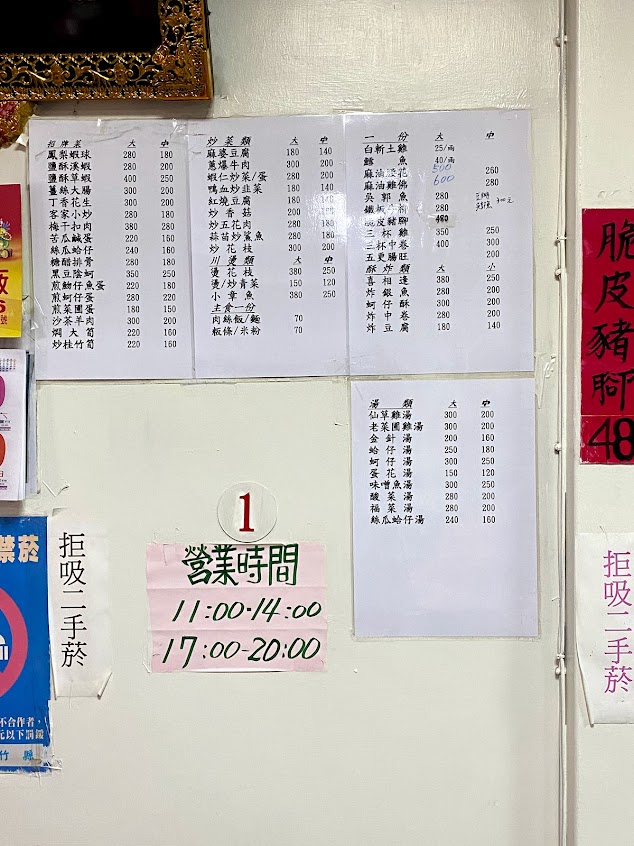 招牌菜 大 中
鳳梨蝦球 280 180
鹽酥溪蝦 280 200
鹽酥草蝦 400 250
薑絲大腸 300 200
丁香花生 300 200
客家小炒 280 180
梅干扣肉 380 280
苦瓜鹹蛋 220 160
絲瓜蛤仔 240 160
糖醋排骨 280 180
黑豆蔭蚵 350 250
煎魩仔魚蛋 280 220
煎蚵仔蛋 280 220
煎菜圃蛋 180 150
沙茶羊肉 300 200
燜大筍 220 160
炒桂竹筍 220 160
炒菜類 大 中
麻婆豆腐 180 140
蔥爆牛肉 300 200
蝦仁炒菜/蛋 280 200
鴨血炒韭菜 180 140
紅燒豆腐 180 140
炒香菇 280 200
炒五花肉 280 180
蒜苗炒鯊魚 280 180
炒花枝 300 200
川燙類 大 中
燙花枝 380 250
燙/炒青菜 150 120
小章魚 380 250
主食一份
肉絲飯/麵 70
粄條/米粉 70
一份 大 中
白斬土雞 25/兩
鱈魚 40/兩
麻油腰花 500 260
麻油雞佛 600 280
吳郭魚 280
鐵板牛柳 280
脆皮豬腳 480
三杯雞 350 250
三杯中卷 400 300
五更腸旺 200
酥炸類 大 小
喜相逢 380 250
炸銀魚 280 200
蚵仔酥 300 200
炸中卷 280 200
炸豆腐 180 140
湯類 大 中
仙草雞湯 300 200
老菜圃雞湯 300 200
金針湯 200 160
蛤仔湯 250 180
蚵仔湯 300 250
蛋花湯 150 120
味噌魚湯 300 250
酸菜湯 280 200
福菜湯 280 200
絲瓜蛤仔湯 240 160
1
營業時間
11:00-14:00
17:00-20:00
拒吸二手菸
禁菸
不合作者，
元以下罰鍰
竹縣
脆皮豬腳
48
拒吸二手菸